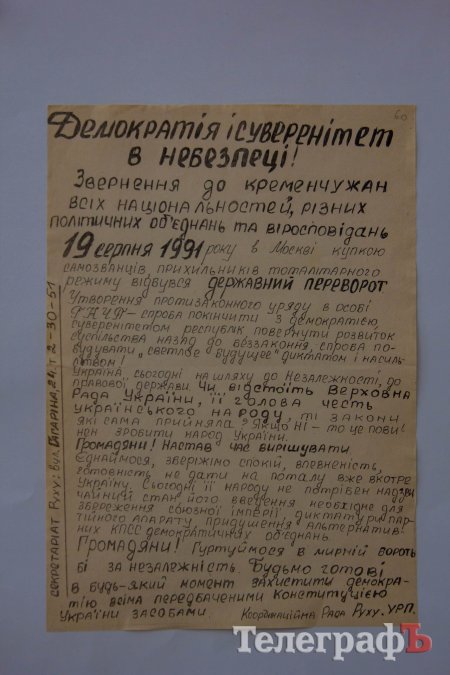 60
Демократія і суверенітет
в небезпеці!
Звернення до кременчужан
всіх національностей, різних
політичних об'єднань та віросповідань
19 серпня 1991 року в Москві купкою
самозванців, прихильників тоталітарного
режиму відбувся державний переворот
Утворення протизаконного уряду в особі
– спроба покінчити з демократією,
суверенітетом республік повернути розвиток
суспільства назад до беззаконня, спроба по-
будувати „светлое будущее" диктатом і насиль-
ством!
Україна, сьогодні на шляху до Незалежності, до
правової держави. Чи відстоїть Верховна
Рада України, її голова честь
українського народу, ті закони
які сама прийняла? Якщо ні – то це пови-
нен зробити народ України.
Громадяни! Настав час вирішувати
Єднаймося, зберіжімо спокій, впевненість,
готовність не дати на поталу вже вкотре
Україну. Сьогодні її народу не потрібен надзви
чайний стан його введення необхідне для
збереження союзної імперії, диктатури пар-
тійного апарату, придушення альтернатив-
них КПСС демократичних об'єднань.
Громадяни! Гуртуймося в мирній бороть
бі за незалежність. Будьмо готові
в будь-який момент захистити демокра-
тію всіма передбаченими Конституцією
України засобами.
Координаційна Рада Руху. УРП.
Секретаріат Руху: вул. Гагаріна, 24, т. 2-30-51
ТелеграфЪ